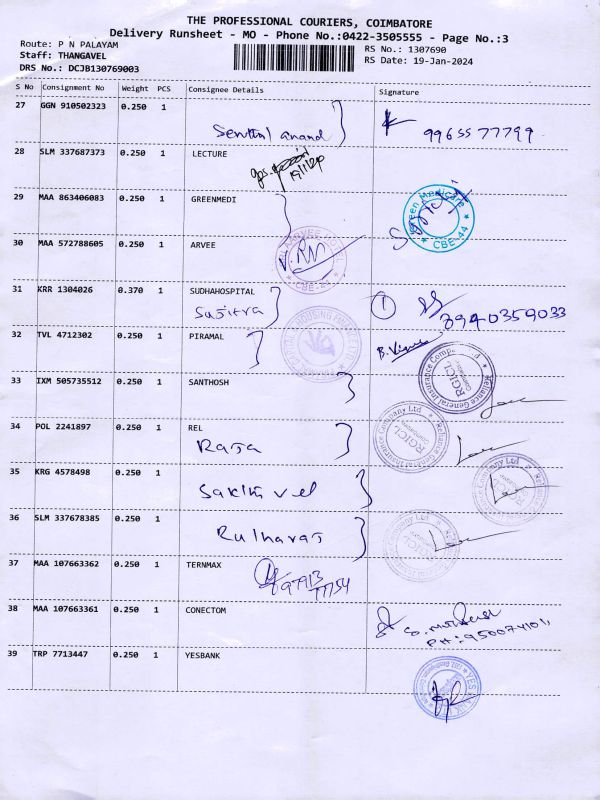 THE PROFESSIONAL COURIERS, COIMBATORE
Delivery Runsheet - MO - Phone No.:0422-3505555 - Page No.:3
Route: P N PALAYAM
Staff: THANGAVEL
DRS No.: DCJB130769003
RS No.: 1307690
RS Date: 19-Jan-2024
S No Consignment No Weight PCS Consignee Details Signature
27 GGN 910502323 0.250 1
Senthil anand 9965577799
28 SLM 337687373 0.250 1 LECTURE
29 MAA 863406083 0.250 1 GREENMEDI
Green Medicare CBE-44
30 MAA 572788605 0.250 1 ARVEE
31 KRR 1304026 0.370 1 SUDHAHOSPITAL
Sujitra 1 8940359033
32 TVL 4712302 0.250 1 PIRAMAL
Reliance General Insurance Company RGICL
33 IXM 505735512 0.250 1 SANTHOSH
34 POL 2241897 0.250 1 REL
Raja
Reliance General Insurance Company Ltd RGICL
35 KRG 4578498 0.250 1
Sakthivel
36 SLM 337678385 0.250 1
37 MAA 107663362 0.250 1 TERNMAX
97913
77754
38 MAA 107663361 0.250 1 CONECTOM
PH: 950074101
39 TRP 7713447 0.250 1 YESBANK
YES BANK